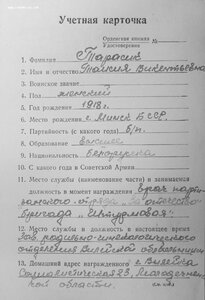 Учетная карточка
Орденская книжка №
Удостоверение
1. Фамилия Тарасик
2. Имя и отчество Таисия Викентьевна
3. Воинское звание
4. Пол женский
5. Год рождения 1918 г.
6. Место рождения г. Минск БССР
7. Партийность (с какого года) б/п
8. Образование высшее
9. Национальность белоруска
10. С какого года в Советской Армии
11. Место службы (наименование части) и занимаемая
должность в момент награждения врач парти-
занского отряда "За отечество"
бригада "Штурмовая"
12. Место службы и должность в настоящее время
Зав. родильно-гинекологического
отделения Вилейской больницы
13. Домашний адрес награжденного г. Вилейка
Социалистическая 23, Молодечнен-
ской области.